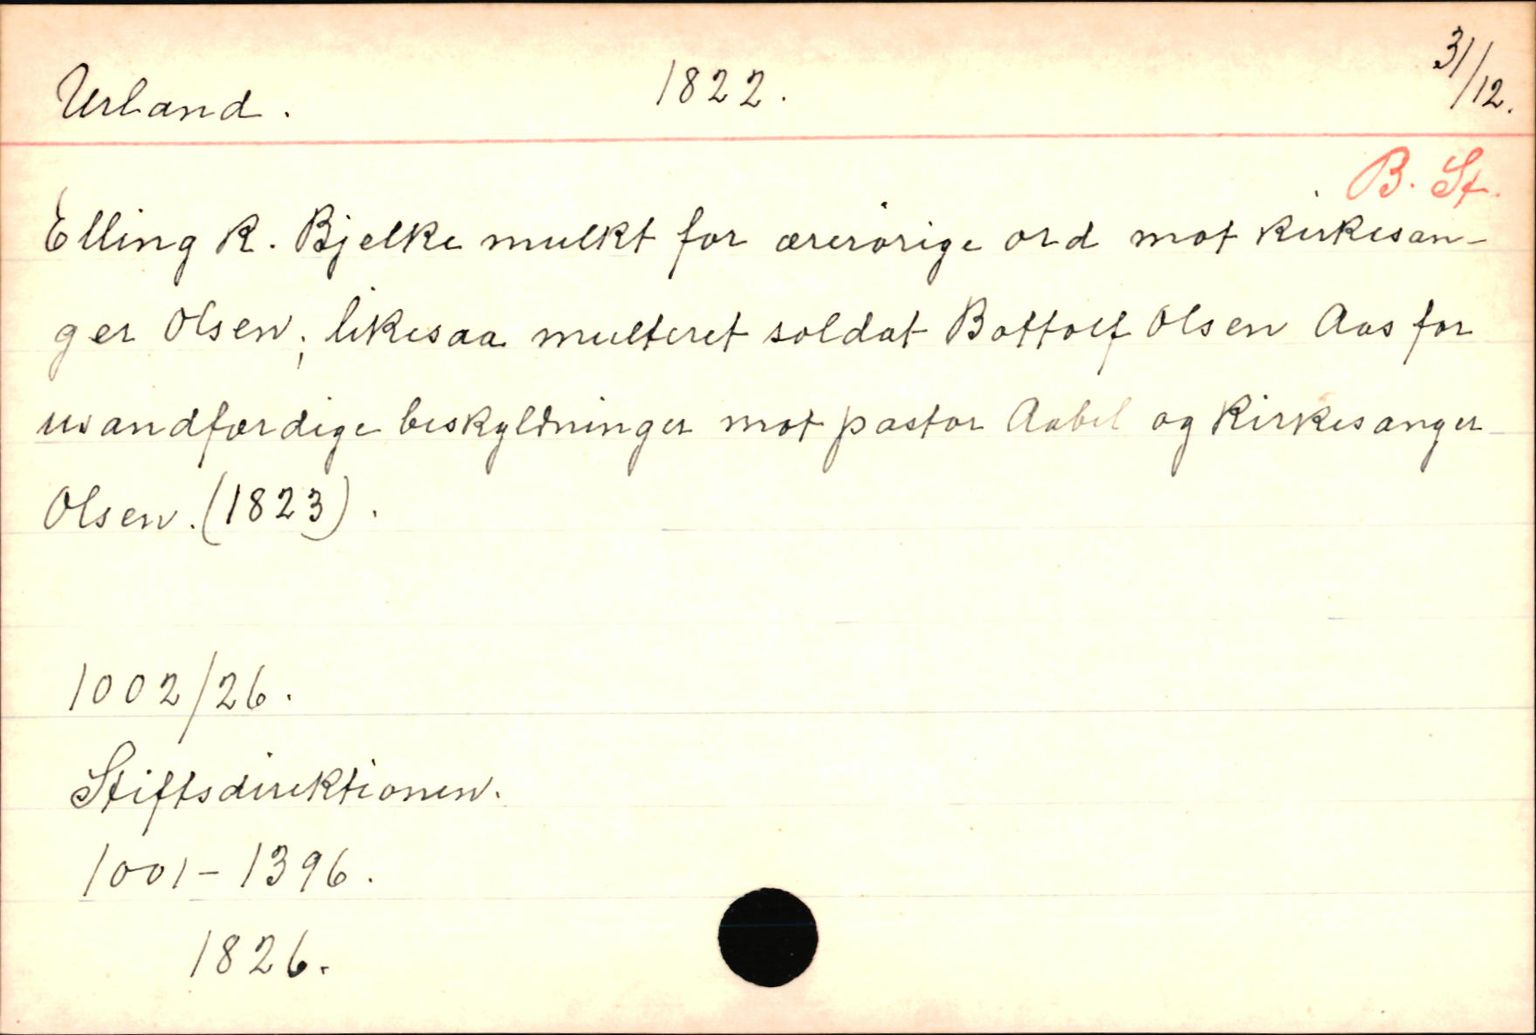 Urland. 1822. 31/12.
B. St.
Elling K. Bjelke mulkt for ærerørige ord mot kirkesan-
ger Olsen; likesaa multeret soldat Bottolf Olsen Aas for
usandfærdige beskyldninger mot pastor Aabel og kirkesanger
Olsen. (1823).
1002/26.
Stiftsdirektionen.
1001-1396.
1826.